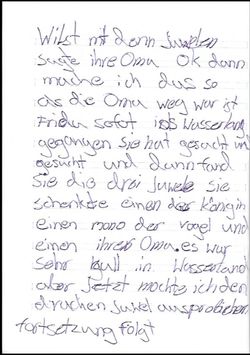 Wilst mit denn Juwelen
sagte ihre Oma Ok dann
mache ich das so
als die Oma weg war ist
Frida sofort ins Wasserland
gegangen Sie hat gesucht und
gesucht und dann fand
Sie die drei Juwele sie
schenkte einen der köngin
einen mono der vogel und
einen ihrer Oma. es war
Sehr kull in Wasserland
aber jetzt möchte ich den
drachen juwel ausprobieren
fortsetzung folgt